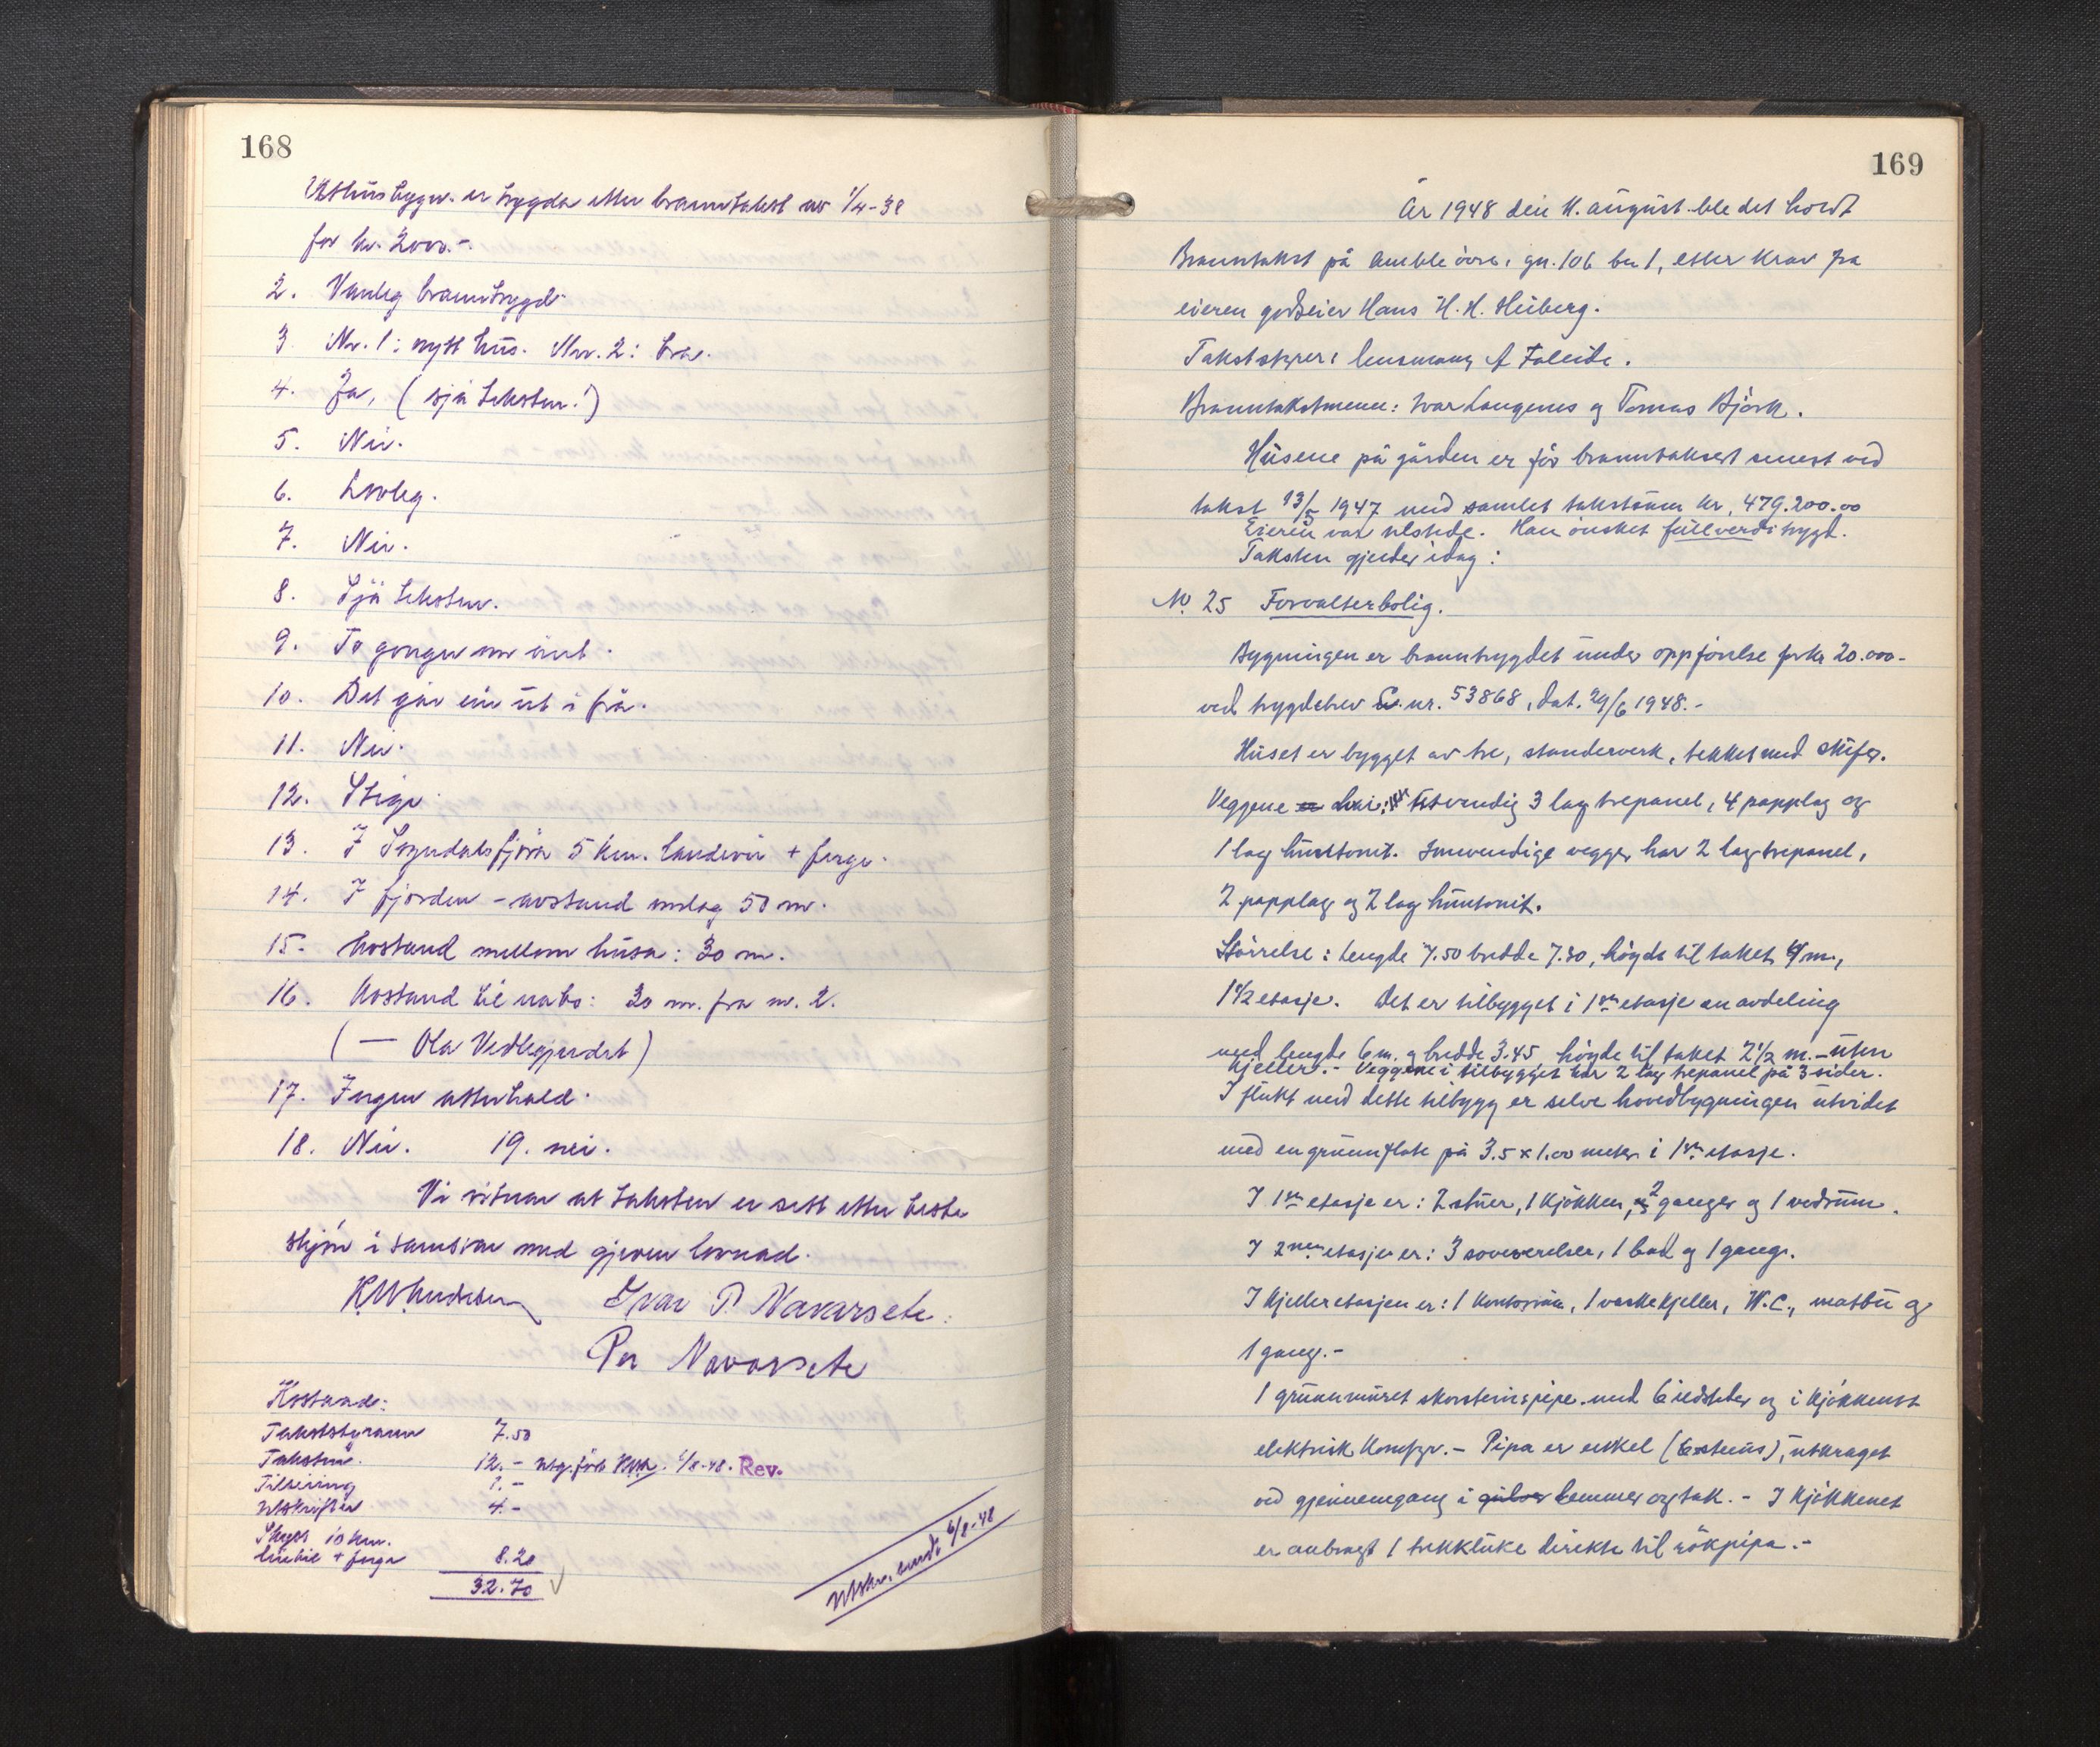 168
Uthusbygn. er trygda etter branntakst av 1/4-38
for kr. 2000.-
2. Vanleg branntrygd
3 Nr. 1: nytt hus. Nr. 2: bra.
4. Ja, (sjå taksten!)
5. Nei.
6. Lovleg.
7. Nei.
8. Sjå taksten.
9. To gonger um året.
10. Det går ein ut i frå.
11. Nei.
12. Stige
13. I Sogndalsfjøra 5 km. landevei + ferge.
14. I fjorden - avstand umlag 50 m.
15. Avstand mellom husa: 30 m.
16. Avstand til nabo: 30 m. fra nr. 2.
( — Ola Vedlegjerdet)
17. Ingen atterhald.
18. Nei. 19. nei.
Vi vitnar at taksten er sett etter beste
skjøn i samsvar med gjeven lovnad.
Ivar P. Navarsete.
Per Navarsete
Kostnad:
Takststyraren 7.50
Takstm. 12.- utg. förb 6/8-48. Rev.
Tilseiing 1.-
Utskrifter 4.-
Skyss 10 km.
lurbil + ferge 8.20
32.70
Utskr. sendt 6/8-48
169
År 1948 den 11. august ble det holdt
Branntakst på Amble övre, gn. 106 bn 1, etter krav fra
eieren godseier Hans H. H. Heiberg.
Takststyrer: lensmann A Faleide.
Branntakstmenn: Ivar Langenes og Tomas Björk.
Husene på gården er för branntaksert senest ved
takst 13/5 1947 med samlet takstsum kr. 479.200.00
Eieren var tilstede. Han önsket fullverditrygd.
Taksten gjelder idag:
No. 25 Forvalterbolig.
Bygningen er branntrygdet under oppförelse for kr 20.000-
ved trygdebrev nr. 53868, dat. 29/6 1948.-
Huset er bygget av tre, standerverk, tekket med skifer.
Veggene har: Utvendig 3 lag trepanel, 4 papplag og
1 lag huntonit. Innvendige vegger har 2 lag trepanel,
2 papplag og 2 lag huntonit.
Störrelse: Lengde 7.50 bredde 7.30, höyde til taket 4 m.,
1 1/2 etasje. Det er tilbygget i 1ste etasje en avdeling
med lengde 6 m. og bredde 3.45 höyde til taket 2 1/2 m. - uten
kjeller. - Veggene i tilbygget har 2 lag trepanel på 3 sider.
I flukt med dette tilbygg er selve hovedbygningen utvidet
med en grunnflate på 3.5 x 1.00 meter i 1ste etasje.
I 1ste etasje er: 2 stuer, 1 kjökken, 2 ganger og 1 vedrum.
I 2nen etasje er: 3 soveverelser, 1 bad og 1 gang.
I kjelleretasjen er: 1 kontorrum, 1 vaskekjeller, W.C., matbu og
1 gang.-
1 grunnmuret skorsteinspipe med 6 ildsteder og i kjökkenet
elektrisk komfyr. - Pipa er enkel (6 steins), utkraget
ved gjennemgang i gulver lemmer og tak. - I kjökkenet
er anbragt 1 trekkluke direkte til rökpipa.-